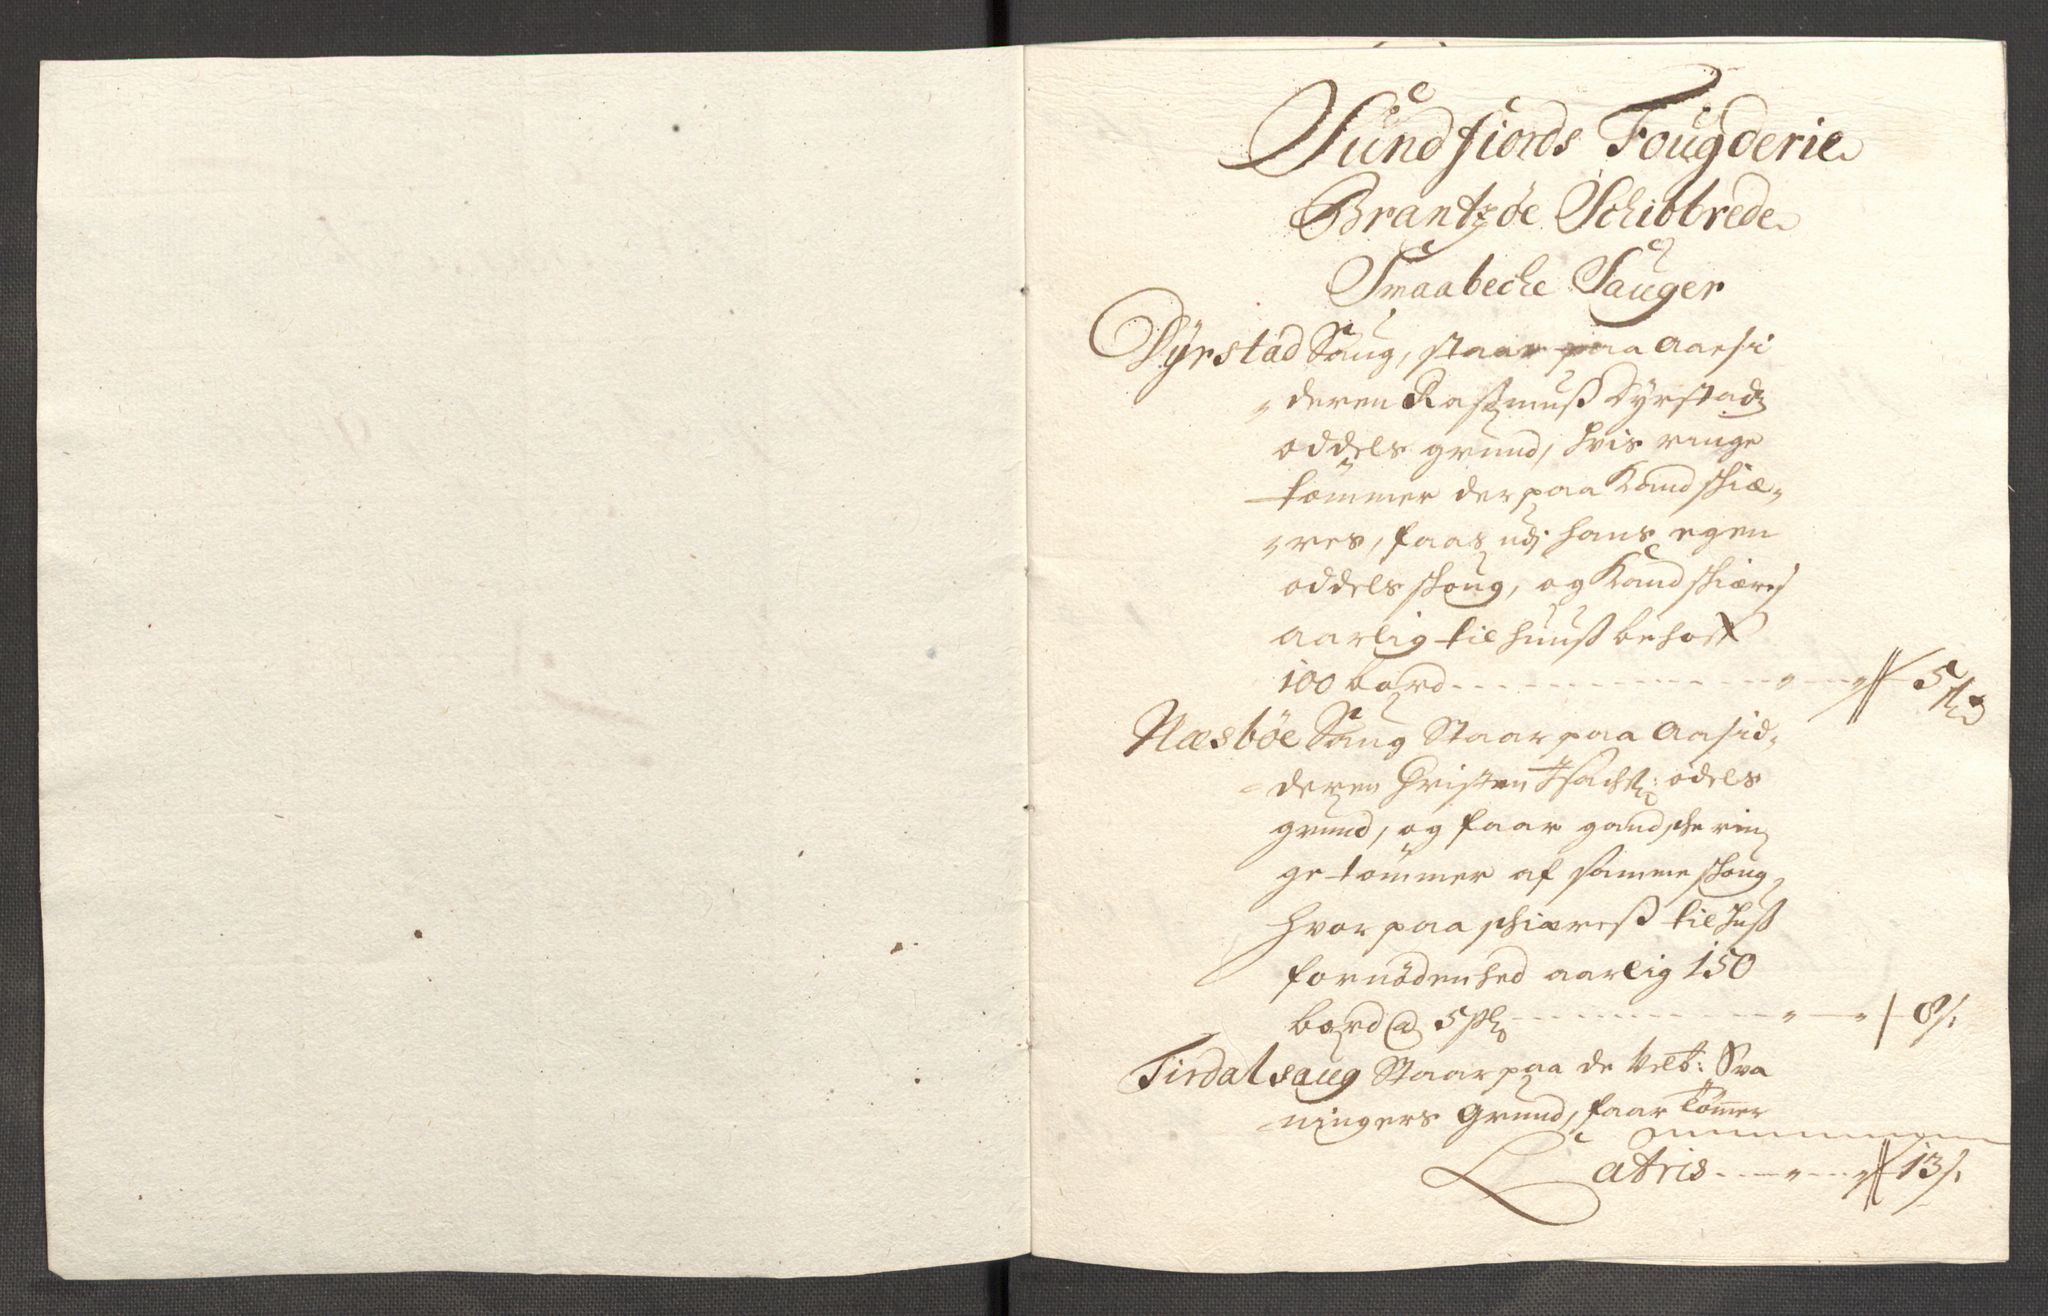 Sundfiords Fougderie
Brantzøe Schibbrede
Smaabeche Sauger
Dyrstad Saug, staar paa Aaesi
deren Rasmuß Dyrstads
oddels grund, hvis ringe
tømmer der paa kand skiæ-
res, faas udj hans egen
oddels skoug, og kand skiæres
aarlig til huuß behoff
100 bord - - - 5 sk
Næsbøe Saug Staar paa Aasid-
deren Christen Isachs: odels
grund, og faar gandske rin
ge tømmer af samme skoug,
hvor paa skiæreß til huß
fornødenhed aarlig 150
bord @ 5 sk - - - 8 /:
Tirdal saug Staar paa de Velb: Sva
ningers Grund, faar Tømer
Latris - - - 13 /: